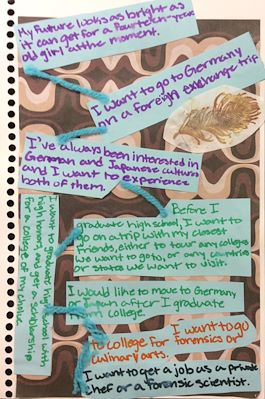 My future looks as bright as
it can get for a fourteen-year-
old girl at the moment.
I want to go to Germany
on a foreign exchange trip
I've always been interested in
German and Japanese cultures
and I want to experience
both of them.
Before I
graduate high school, I want to
go on a trip with my closest
friends, either to tour any colleges
we want to go to, or any countries
or states we want to visit.
I want to graduate high school with
high honors and get a scholarship
for a college of my choice.
I would like to move to Germany
or Japan after I graduate
from college.
I want to go
to college for forensics or
culinary arts.
I want to get a job as a private
chef or a forensic scientist.